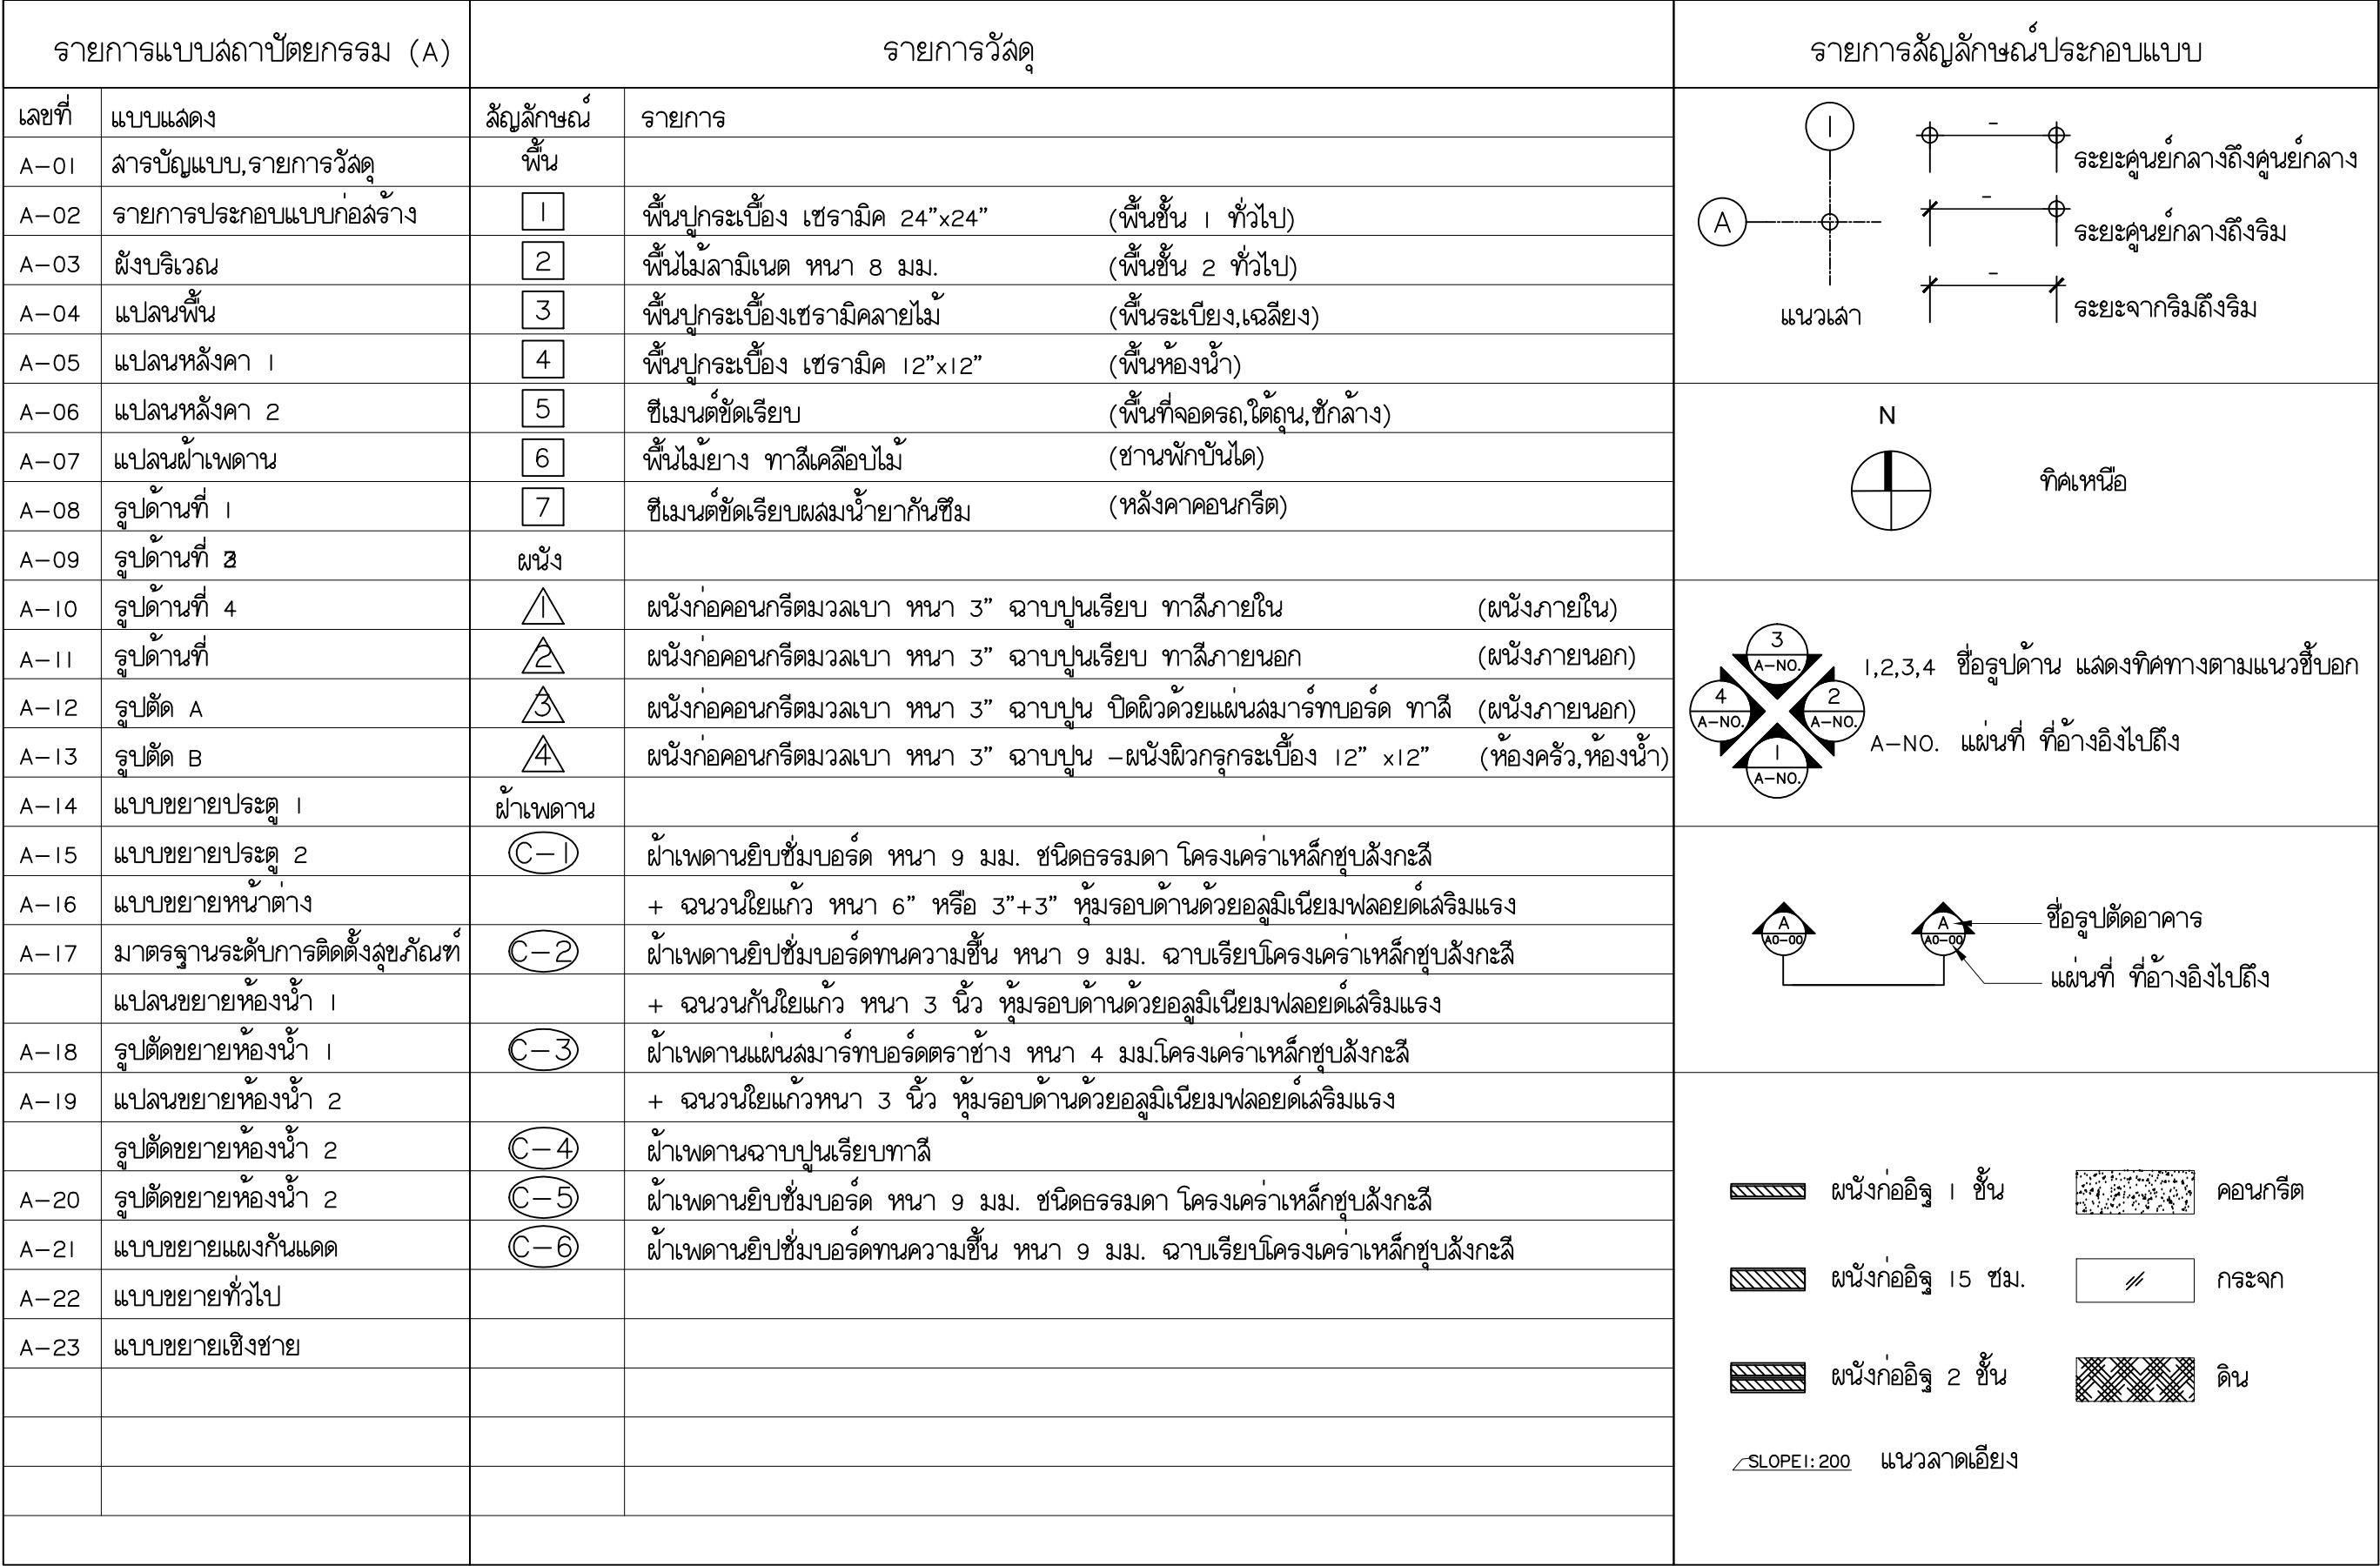 รายการแบบสถาปัตยกรรม (A)
เลขที่ แบบแสดง
A-01 สารบัญแบบ,รายการวัสดุ
A-02 รายการประกอบแบบก่อสร้าง
A-03 ผังบริเวณ
A-04 แปลนพื้น
A-05 แปลนหลังคา 1
A-06 แปลนหลังคา 2
A-07 แปลนฝ้าเพดาน
A-08 รูปด้านที่ 1
A-09 รูปด้านที่
A-10 รูปด้านที่ 4
A-11 รูปด้านที่
A-12 รูปตัด A
A-13 รูปตัด B
A-14 แบบขยายประตู 1
A-15 แบบขยายประตู 2
A-16 แบบขยายหน้าต่าง
A-17 มาตรฐานระดับการติดตั้งสุขภัณฑ์
แปลนขยายห้องน้ำ 1
A-18 รูปตัดขยายห้องน้ำ 1
A-19 แปลนขยายห้องน้ำ 2
รูปตัดขยายห้องน้ำ 2
A-20 รูปตัดขยายห้องน้ำ 2
A-21 แบบขยายแผงกันแดด
A-22 แบบขยายทั่วไป
A-23 แบบขยายเชิงชาย
รายการวัสดุ
สัญลักษณ์ รายการ
พื้น
1 พื้นปูกระเบื้อง เซรามิค 24"x24" (พื้นชั้น 1 ทั่วไป)
2 พื้นไม้ลามิเนต หนา 8 มม. (พื้นชั้น 2 ทั่วไป)
3 พื้นปูกระเบื้องเซรามิคลายไม้ (พื้นระเบียง,เฉลียง)
4 พื้นปูกระเบื้อง เซรามิค 12"x12" (พื้นห้องน้ำ)
5 ซีเมนต์ขัดเรียบ (พื้นที่จอดรถ,ใต้ถุน,ซักล้าง)
6 พื้นไม้ยาง ทาสีเคลือบไม้ (ชานพักบันได)
7 ซีเมนต์ขัดเรียบผสมน้ำยากันซึม (หลังคาคอนกรีต)
ผนัง
1 ผนังก่อคอนกรีตมวลเบา หนา 3" ฉาบปูนเรียบ ทาสีภายใน (ผนังภายใน)
2 ผนังก่อคอนกรีตมวลเบา หนา 3" ฉาบปูนเรียบ ทาสีภายนอก (ผนังภายนอก)
3 ผนังก่อคอนกรีตมวลเบา หนา 3" ฉาบปูน ปิดผิวด้วยแผ่นสมาร์ทบอร์ด ทาสี (ผนังภายนอก)
4 ผนังก่อคอนกรีตมวลเบา หนา 3" ฉาบปูน -ผนังผิวกรุกระเบื้อง 12" x12" (ห้องครัว,ห้องน้ำ)
ฝ้าเพดาน
C-1 ฝ้าเพดานยิบซั่มบอร์ด หนา 9 มม. ชนิดธรรมดา โครงเคร่าเหล็กชุบสังกะสี
+ ฉนวนใยแก้ว หนา 6" หรือ 3"+3" หุ้มรอบด้านด้วยอลูมิเนียมฟลอยด์เสริมแรง
C-2 ฝ้าเพดานยิปซั่มบอร์ดทนความชื้น หนา 9 มม. ฉาบเรียบโครงเคร่าเหล็กชุบสังกะสี
+ ฉนวนกันใยแก้ว หนา 3 นิ้ว หุ้มรอบด้านด้วยอลูมิเนียมฟลอยด์เสริมแรง
C-3 ฝ้าเพดานแผ่นสมาร์ทบอร์ดตราช้าง หนา 4 มม.โครงเคร่าเหล็กชุบสังกะสี
+ ฉนวนใยแก้วหนา 3 นิ้ว หุ้มรอบด้านด้วยอลูมิเนียมฟลอยด์เสริมแรง
C-4 ฝ้าเพดานฉาบปูนเรียบทาสี
C-5 ฝ้าเพดานยิบซั่มบอร์ด หนา 9 มม. ชนิดธรรมดา โครงเคร่าเหล็กชุบสังกะสี
C-6 ฝ้าเพดานยิปซั่มบอร์ดทนความชื้น หนา 9 มม. ฉาบเรียบโครงเคร่าเหล็กชุบสังกะสี
รายการสัญลักษณ์ประกอบแบบ
1
A
แนวเสา
- ระยะศูนย์กลางถึงศูนย์กลาง
- ระยะศูนย์กลางถึงริม
- ระยะจากริมถึงริม
N
ทิศเหนือ
3 A-NO.
4 A-NO.
2 A-NO.
1 A-NO.
1,2,3,4 ชื่อรูปด้าน แสดงทิศทางตามแนวชี้บอก
A-NO. แผ่นที่ ที่อ้างอิงไปถึง
A A0-00
A A0-00
ชื่อรูปตัดอาคาร
แผ่นที่ ที่อ้างอิงไปถึง
ผนังก่ออิฐ 1 ชั้น คอนกรีต
ผนังก่ออิฐ 15 ซม. กระจก
ผนังก่ออิฐ 2 ชั้น ดิน
SLOPE1:200 แนวลาดเอียง